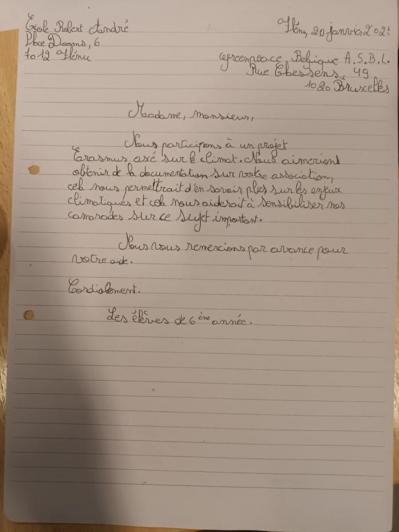 École Robert André
Place Degauque, 6
7012 Flénu
Flénu, 20 janvier 202
Greenpeace Belgique A.S.B.L.
Rue Chessens, 49
1020 Bruxelles
Madame, Monsieur,
Nous participons à un projet
Erasmus axé sur le climat. Nous aimerions
obtenir de la documentation sur votre association,
cela nous permettrait d'en savoir plus sur les enjeux
climatiques et cela nous aiderait à sensibiliser nos
camarades sur ce sujet important.
Nous vous remercions par avance pour
votre aide.
Cordialement.
Les élèves de 6ème année.